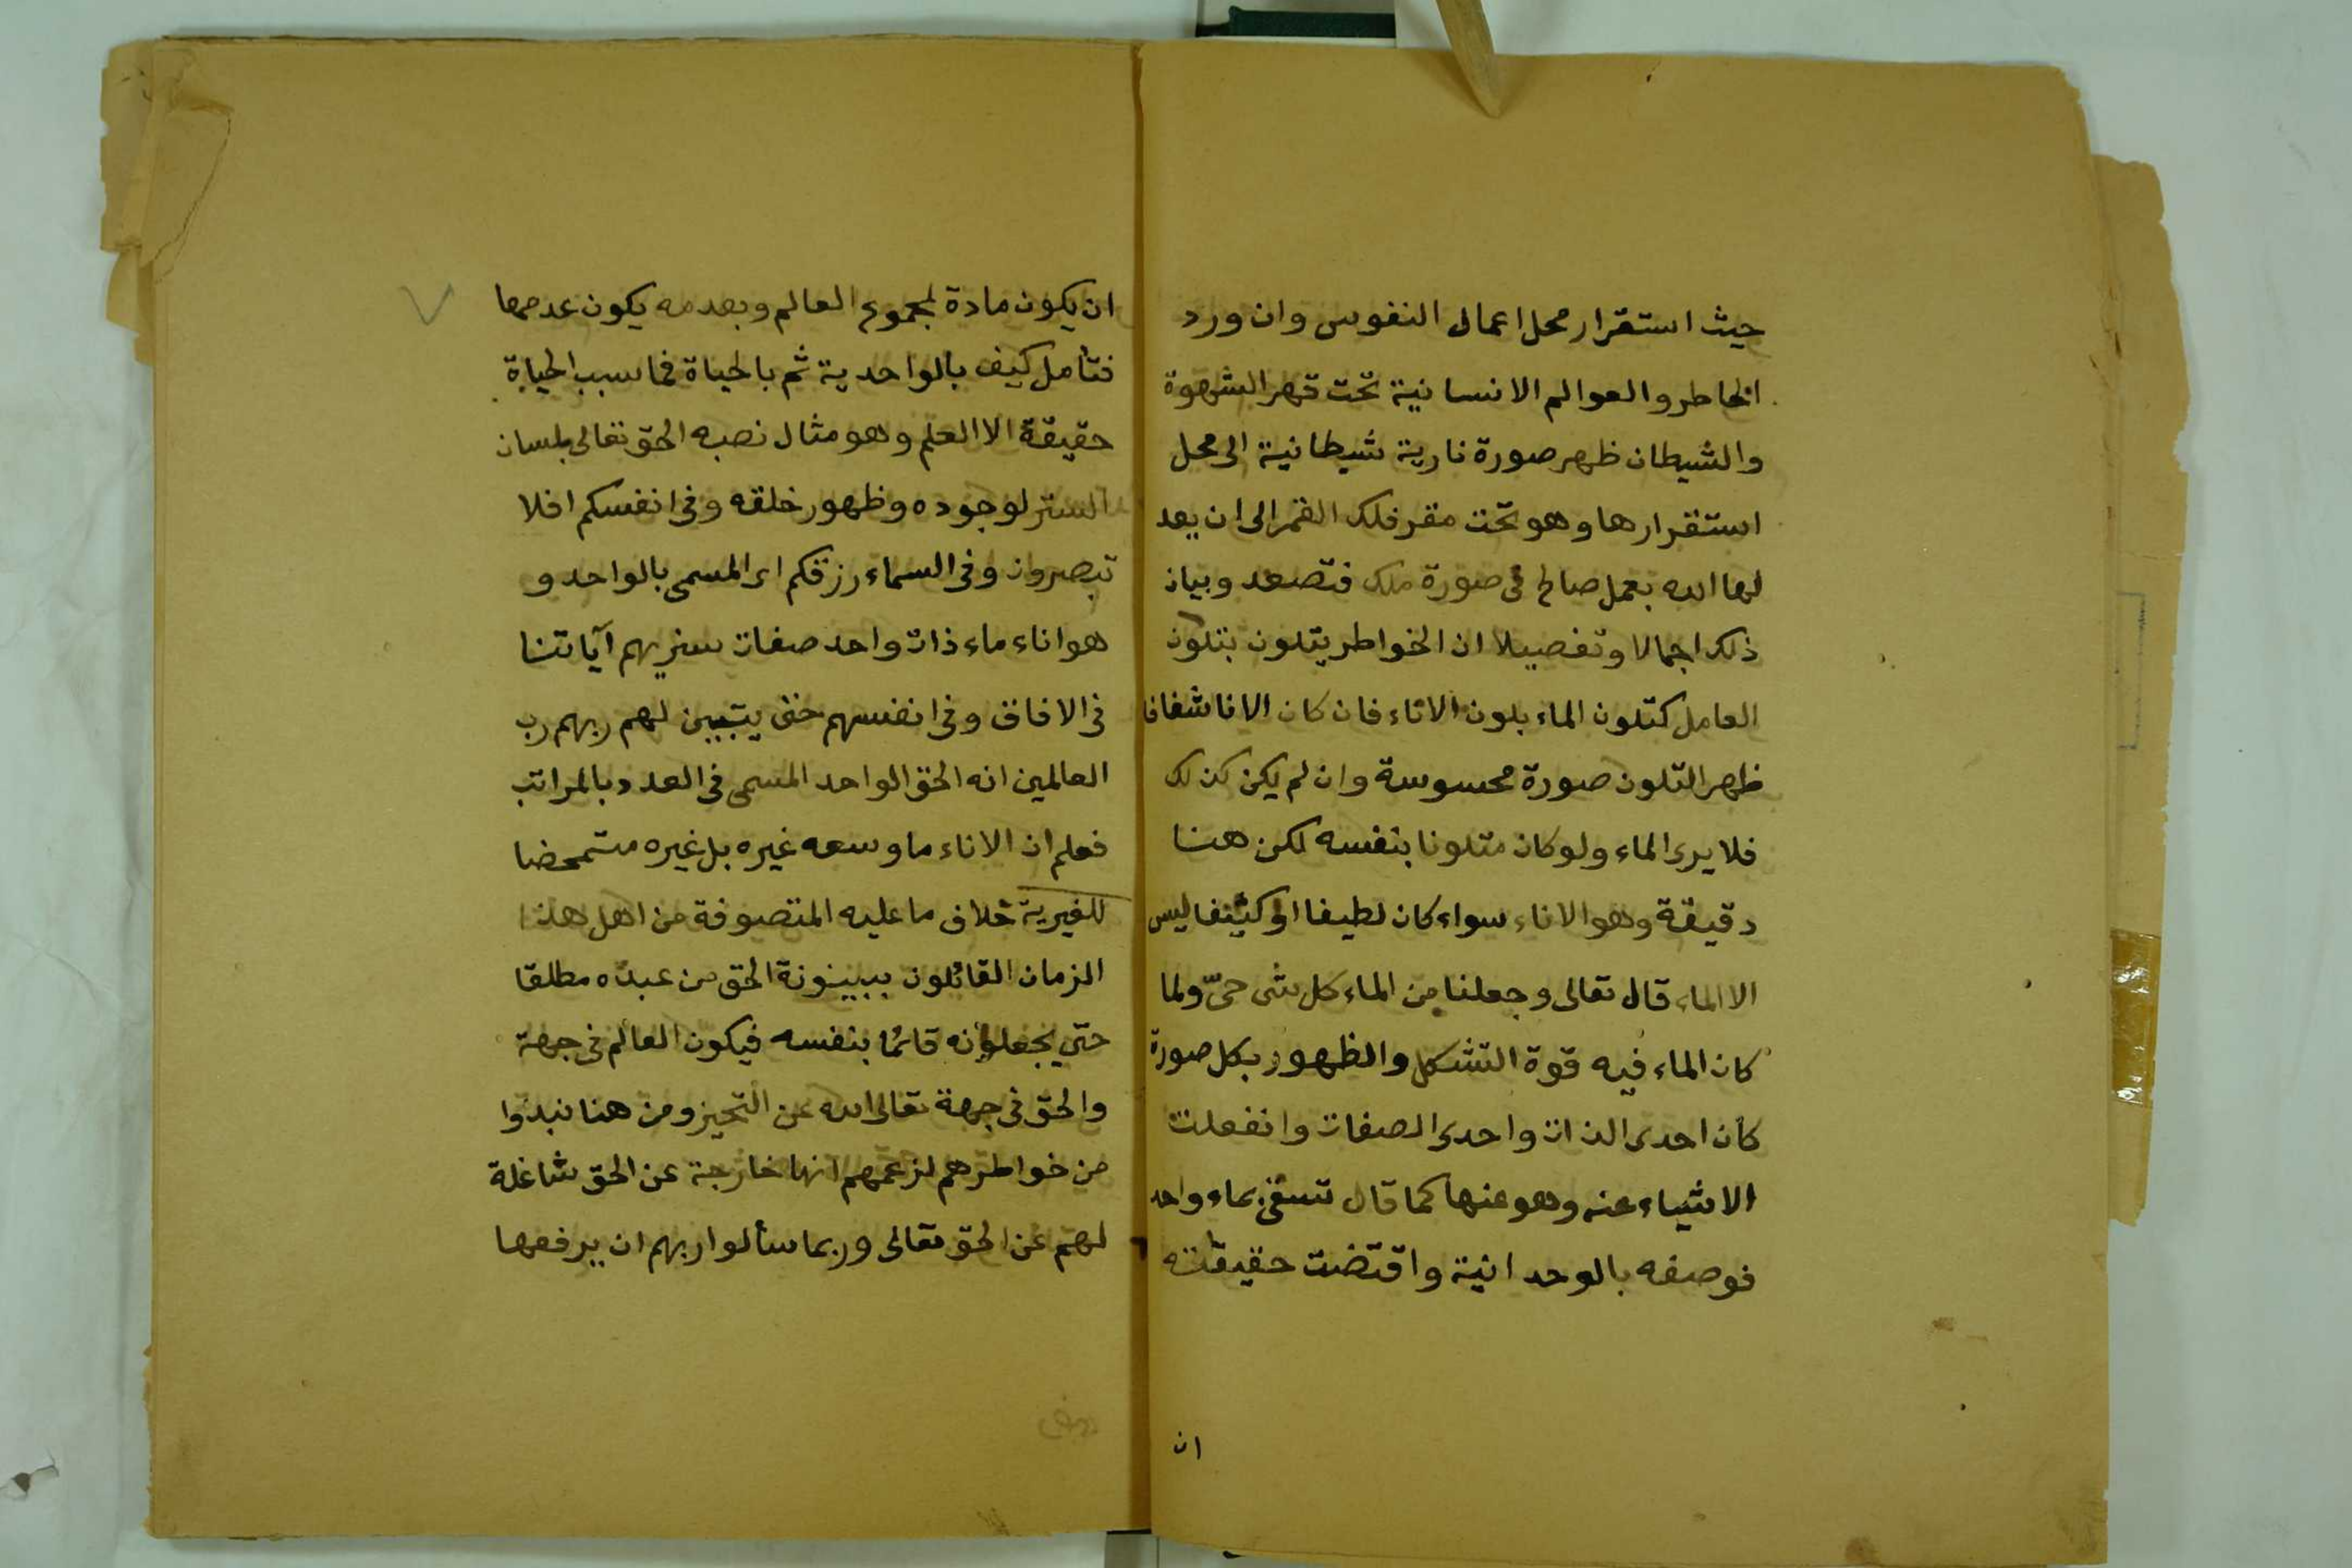 حيث استقرار محل اعمال النفوس وان ورد
الخاطر والعوالم الانسانية تحت قهر الشهوة
والشيطان ظهر صورة نارية شيطانية الى محل
استقرارها وهو تحت مقر فلك القمر الى ان يعد
لها الله بعمل صالح فى صورة ملك فتصعد وبيان
ذلك اجمالا وتفصيلا ان الخواطر يتلون بتلون
العامل كتلون الماء بلون الاناء فان كان الانا شفافا
ظهر التلون صورة محسوسة وان لم يكن كذلك
فلا يرى الماء ولو كان متلونا بنفسه لكن هنا
دقيقة وهو الاناء سواء كان لطيفا او كثيفا ليس
الا الماء قال تعالى وجعلنا من الماء كل شى حىّ ولما
كان الماء فيه قوة التشكل والظهور بكل صورة
كان احدى الذات واحدى الصفات وانفعلت
الاشياء عنه وهو عنها كما قال تسقى بماء واحد
فوصفه بالوحدانية واقتضت حقيقته
ان
ان يكون مادة لمجموع العالم وبعدمه يكون عدمها
فتأمل كيف بالواحدية ثم بالحياة فما سبب الحياة
حقيقة الا العلم وهو مثال نصبه الحق تعالى بلسان
الستر لوجوده وظهور خلقه وفى انفسكم افلا
تبصرون وفى السماء رزقكم اى المسمى بالواحد و
هو اناء ماء ذات واحد صفات سنريهم آياتنا
فى الافاق وفى انفسهم حتى يتبين لهم ربهم رب
العالمين انه الحق الواحد المسمى فى العدد بالمراتب
فعلم ان الاناء ما وسعه غيره بل غيره متمحضا
للغيرية خلاف ما عليه المتصوفة من اهل هذا
الزمان القائلون ببينونة الحق من عبده مطلقا
حتى يجعلونه قائما بنفسه فيكون العالم فى جهة
والحق فى جهة تعالى الله عن التحيز ومن هنا نبذوا
من خواطرهم لزعمهم انها خارجة عن الحق شاغلة
لهم عن الحق تعالى وربما سألوا ربهم ان يرفعها